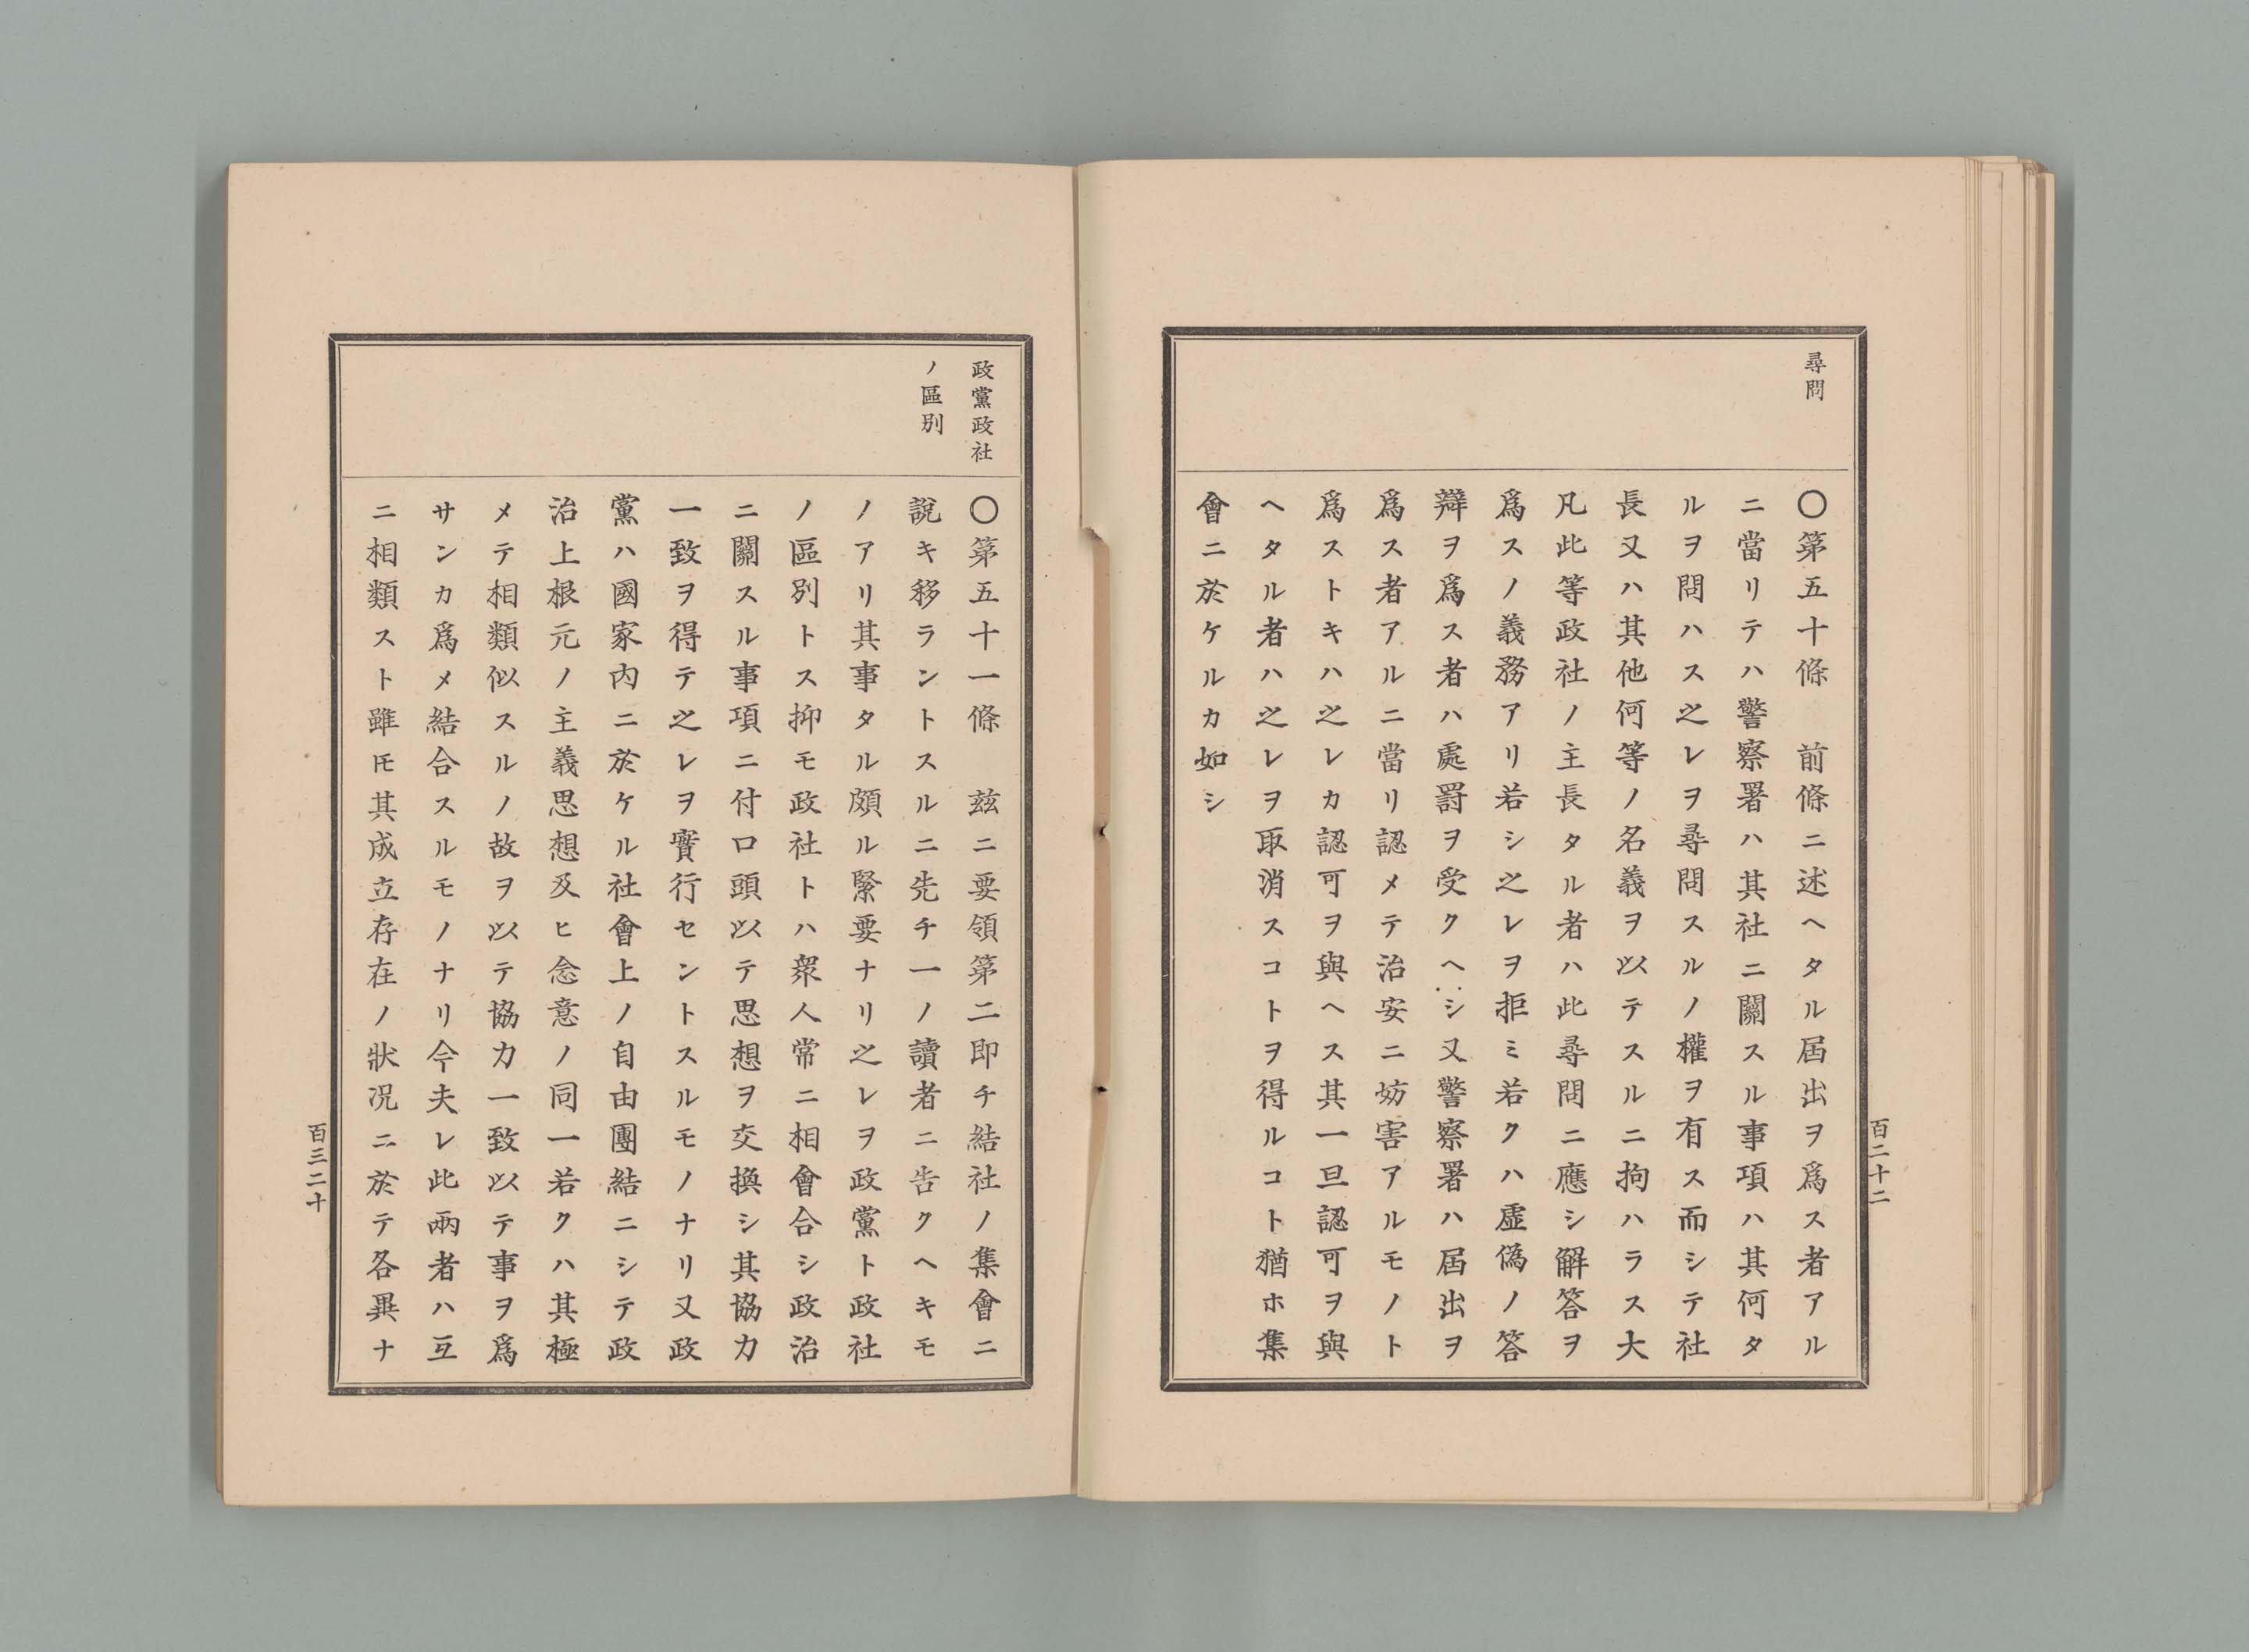 尋問
〇第五十條　前條ニ述ヘタル屆出ヲ爲ス者アル
ニ當リテハ警察署ハ其社ニ關スル事項ハ其何タ
ルヲ問ハス之レヲ尋問スルノ權ヲ有ス而シテ社
長又ハ其他何等ノ名義ヲ以テスルニ拘ハラス大
凡此等政社ノ主長タル者ハ此尋問ニ應シ解答ヲ
爲スノ義務アリ若シ之レヲ拒ミ若クハ虛僞ノ答
辯ヲ爲ス者ハ處罰ヲ受クヘシ又警察署ハ屆出ヲ
爲ス者アルニ當リ認メテ治安ニ妨害アルモノト
爲ストキハ之レカ認可ヲ與ヘス其一旦認可ヲ與
ヘタル者ハ之レヲ取消スコトヲ得ルコト猶ホ集
會ニ於ケルカ如シ
百二十二
政黨政社
ノ區別
〇第五十一條　玆ニ要領第二即チ結社ノ集會ニ
說キ移ラントスルニ先チ一ノ讀者ニ告クヘキモ
ノアリ其事タル頗ル緊要ナリ之レヲ政黨ト政社
ノ區別トス抑モ政社トハ衆人常ニ相會合シ政治
ニ關スル事項ニ付口頭以テ思想ヲ交換シ其協力
一致ヲ得テ之レヲ實行セントスルモノナリ又政
黨ハ國家內ニ於ケル社會上ノ自由團結ニシテ政
治上根元ノ主義思想及ヒ念意ノ同一若クハ其極
メテ相類似スルノ故ヲ以テ協力一致以テ事ヲ爲
サンカ爲メ結合スルモノナリ今夫レ此兩者ハ互
ニ相類スト雖𪜈其成立存在ノ狀況ニ於テ各異ナ
百三二十